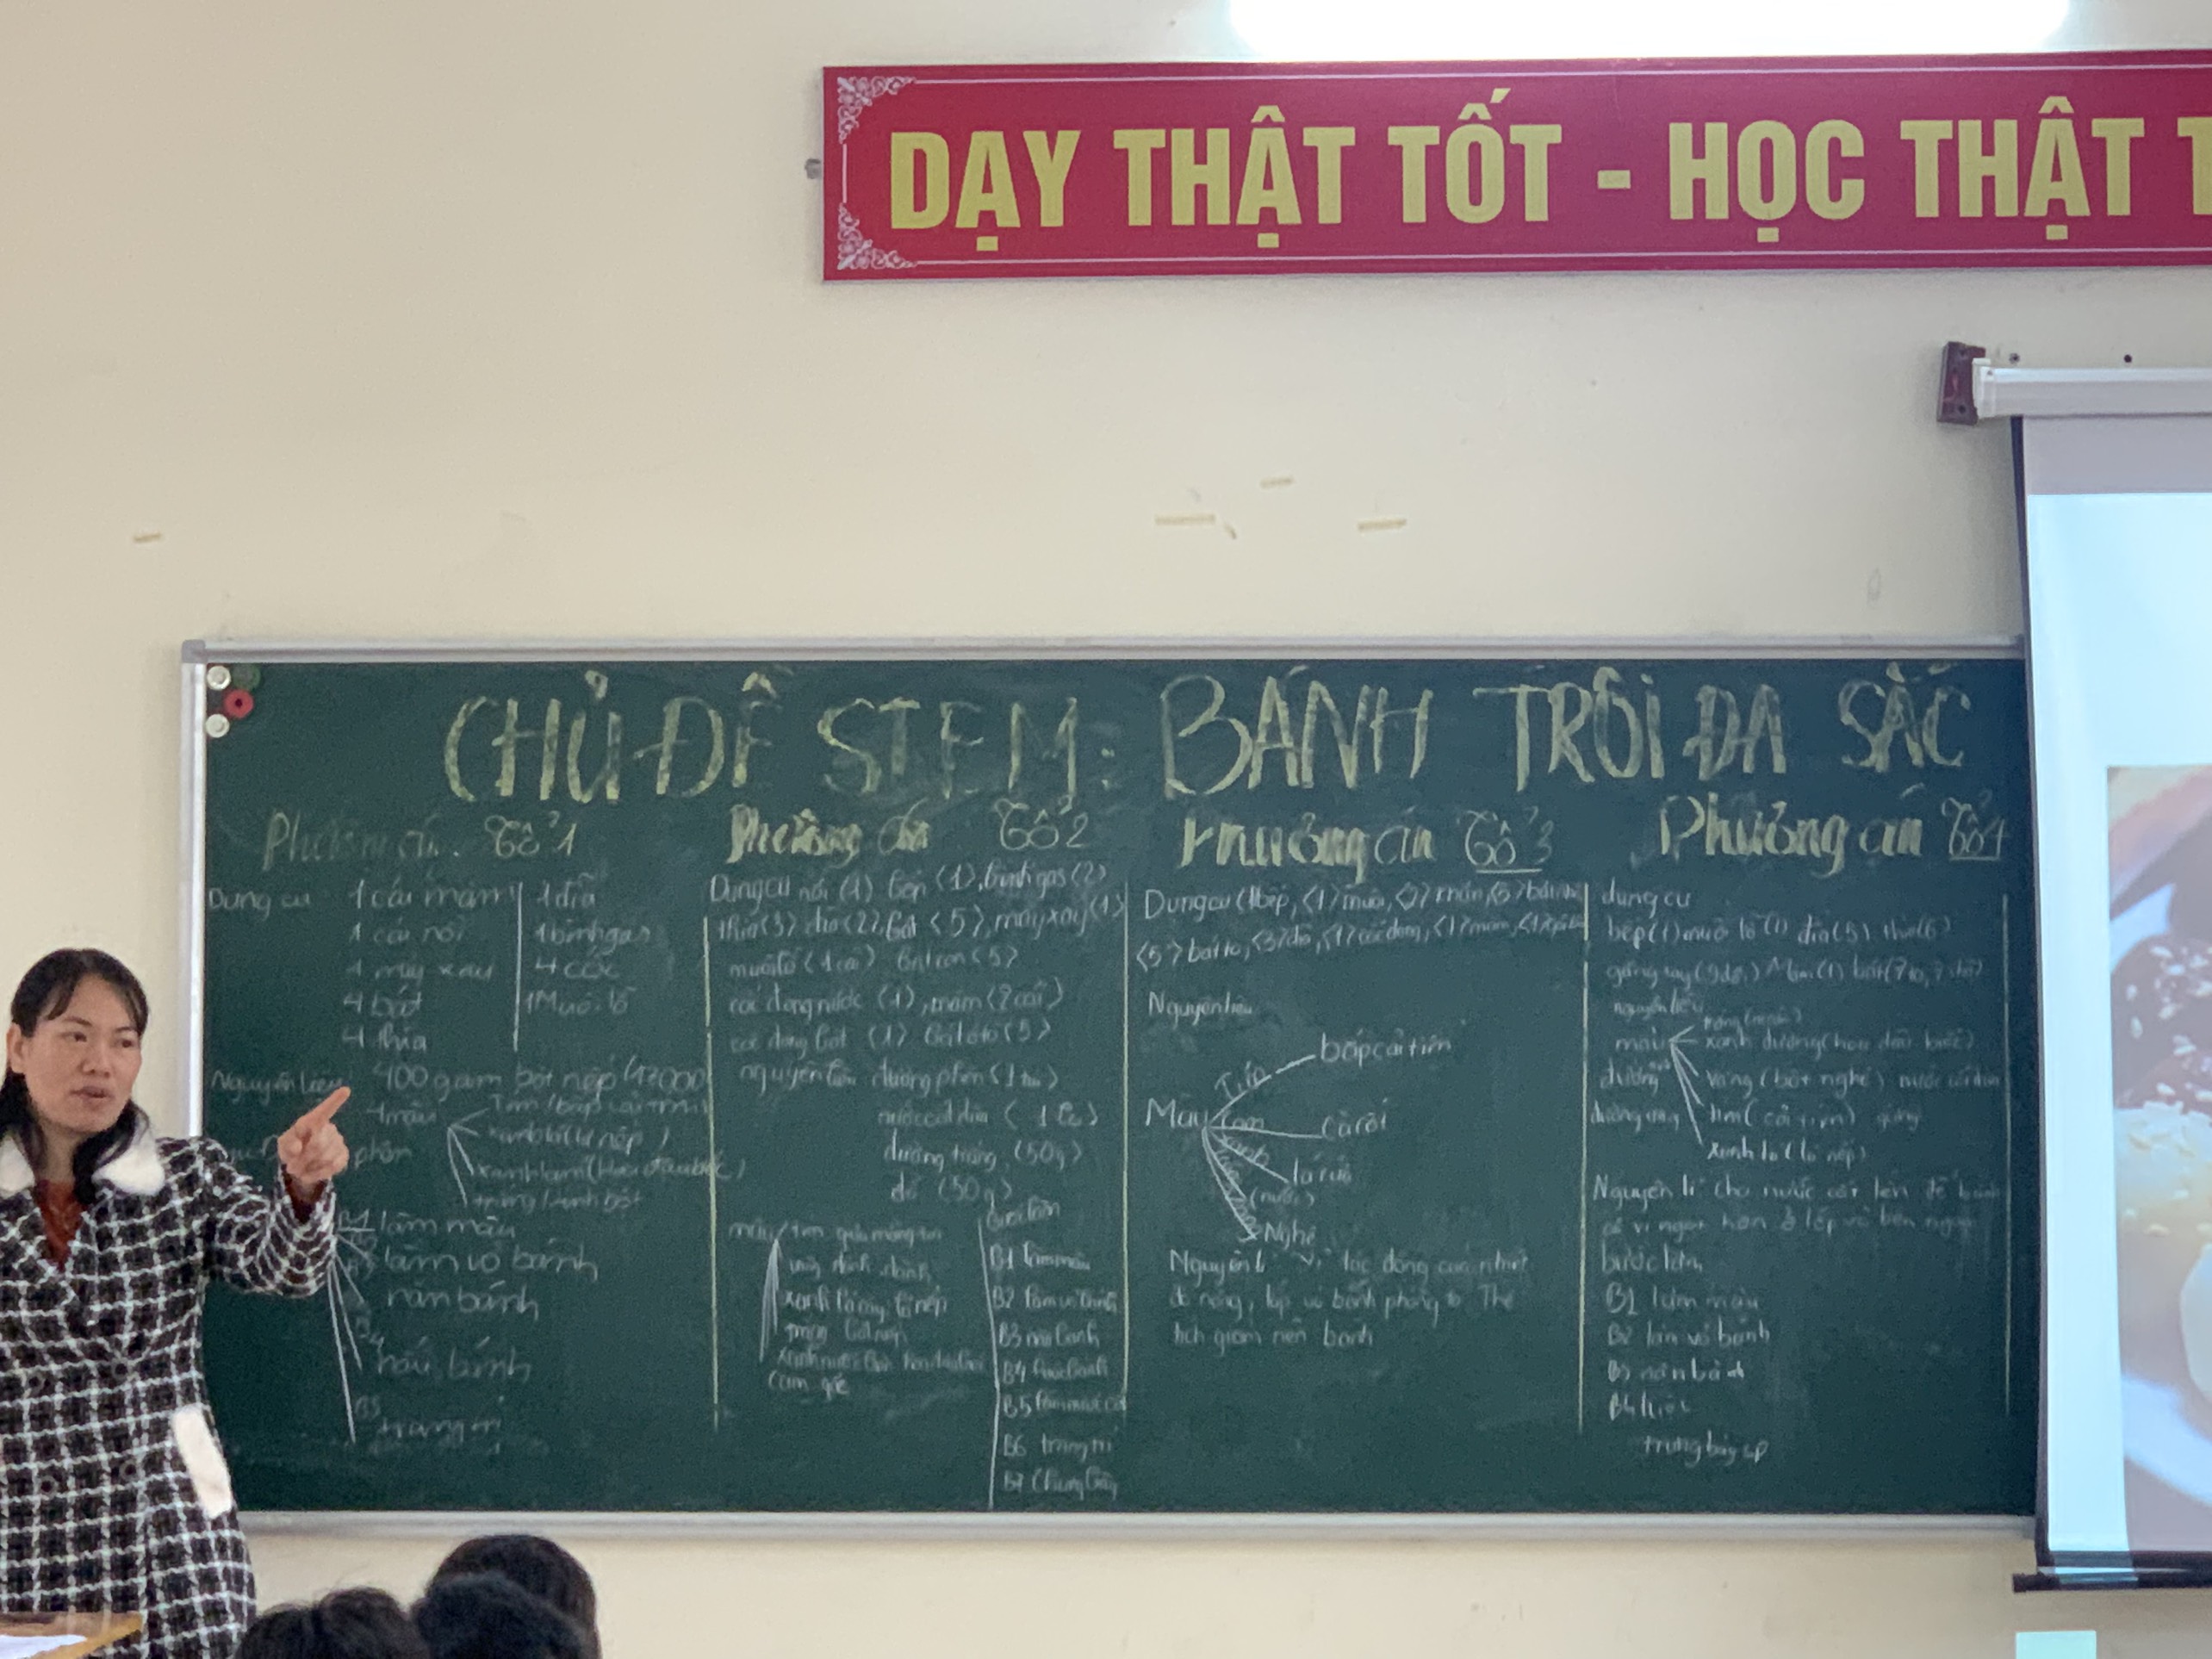 DẠY THẬT TỐT - HỌC THẬT T
CHỦ ĐỀ STEM: BÁNH TRÔI ĐA SẮC
Phương án Tổ 1
Dụng cụ 1 cái mâm 1 đĩa
1 cái nồi 1 bình gas
1 máy xay 4 cốc
4 bát 1 Muôi lỗ
4 thìa
Nguyên liệu 400 gam bột nếp
4 màu
xanh lá (lá nếp)
xanh lam (Hoa đậu biếc)
phên
B1 làm màu
làm vỏ bánh
nặn bánh
B4 nấu bánh
B5 trang trí
Phương án Tổ 2
Dụng cụ nồi (1) bếp (1), bình gas (2)
thìa (3) đĩa (2), bát (5), máy xay (1)
muôi lỗ (1 cái) bát con (5)
cốc đong nước (1), mâm (2 cái)
cốc đong bột (1) bát ôtô (5)
nguyên liệu đường phên (1 túi)
nước cốt dừa (1 lo)
đường trắng (50g)
đỗ (50g)
màu tím quả mồng tơi
xanh lá cây: lá nếp
trắng bột nếp
cam gấc
B1 làm màu
B2 làm vỏ bánh
B3 nặn bánh
B4 luộc bánh
B5 làm nước cốt
B6 trang trí
B7 Chưng bày
Phương án Tổ 3
Dụng cụ (1) bếp, (1) muôi,
(5) bát to, (3) đĩa, (1) cốc đong, (1) mâm,
Nguyên liệu
Màu Tím bắp cải tím
Cam cà rốt
Xanh lá
Nghệ
Nguyên lí Vì tác động của nhiệt
độ nóng, lớp vỏ bánh phồng to. Thể
tích giảm nên bánh
Phương án Tổ 4
dụng cụ
bếp (1) muôi lỗ (1) đĩa (5) thìa (6)
găng tay Mâm (1) bát
nguyên liệu
màu xanh dương (hoa đậu biếc)
đường vàng (bột nghệ) nước cốt dừa
tím (cải tím) gừng
xanh lá (lá nếp)
Nguyên lí cho nước cốt lên để bánh
có vị ngọt hơn ở lớp vỏ bên ngoài
bước làm
B1 làm màu
B2 làm vỏ bánh
B3 nặn bánh
B4 luộc
trưng bày sp